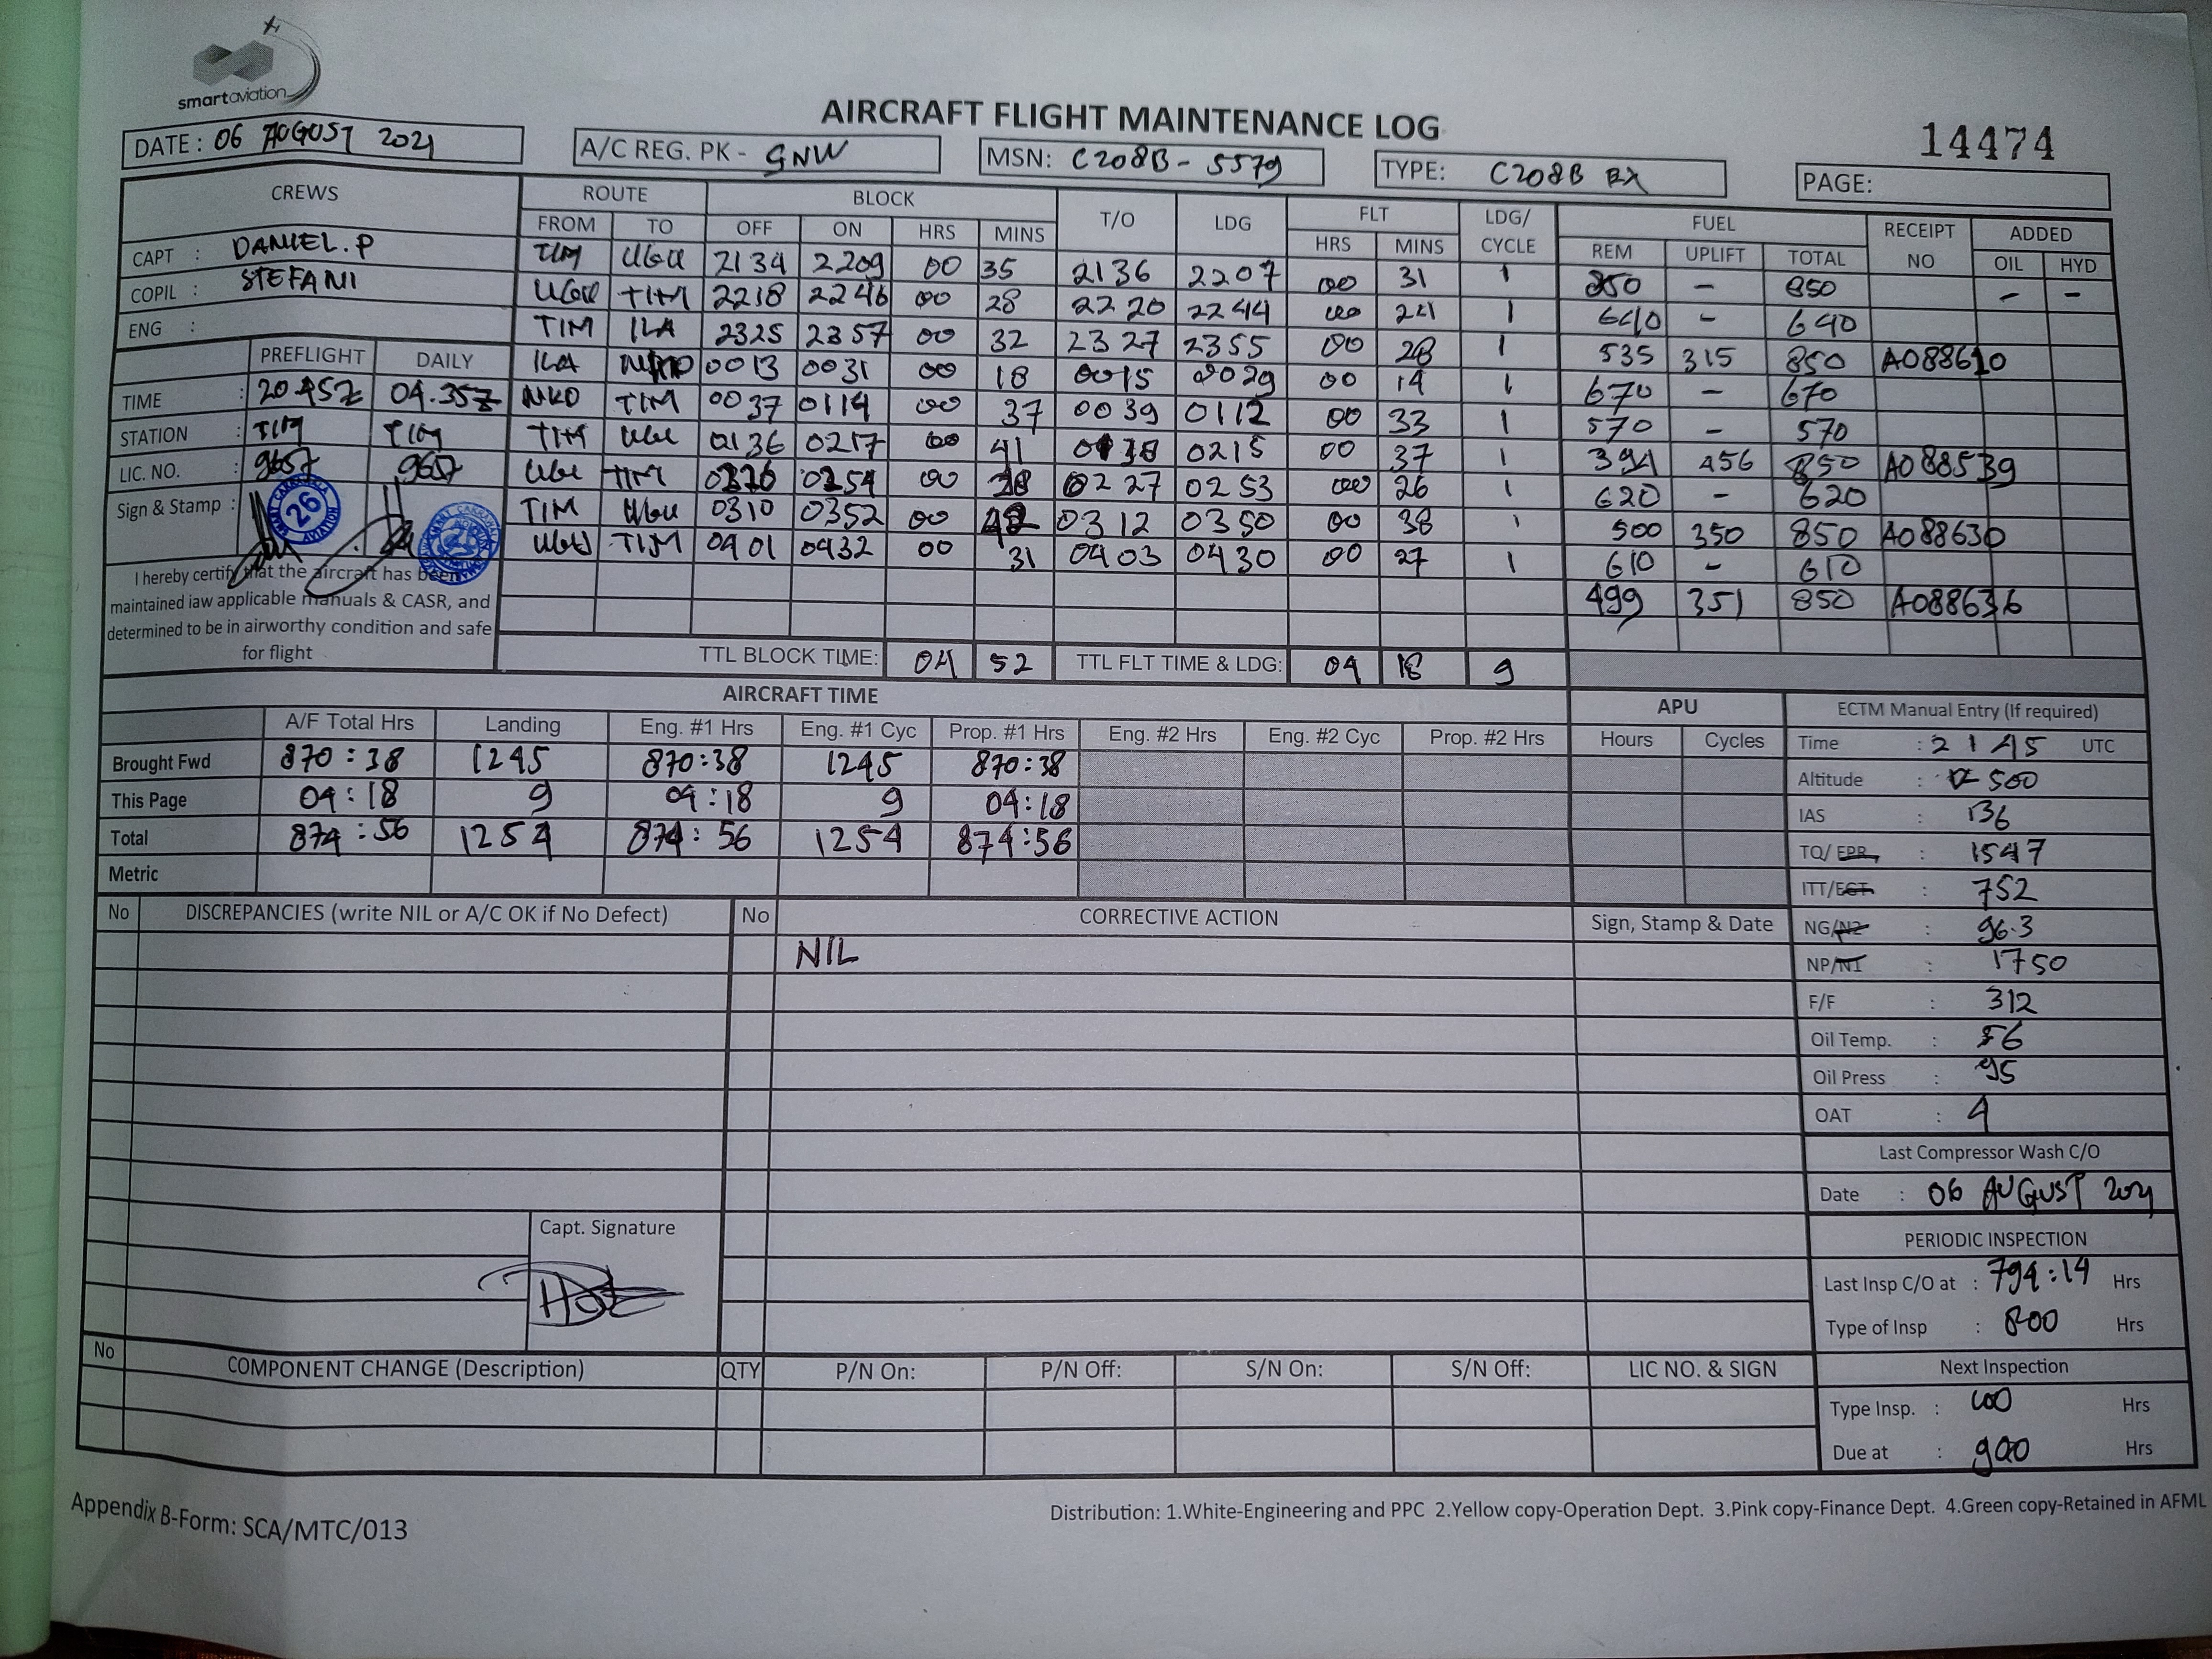 smartaviation
AIRCRAFT FLIGHT MAINTENANCE LOG
14474
DATE : 06 AUGUST 2021
A/C REG. PK - GNW
MSN: C208B - 5579
TYPE: C208B EX
PAGE:
CREWS ROUTE BLOCK T/O LDG FLT LDG/ CYCLE FUEL RECEIPT NO ADDED
FROM TO OFF ON HRS MINS HRS MINS REM UPLIFT TOTAL OIL HYD
CAPT : DANIEL.P
COPIL : STEFANI
ENG :
TIM UGU 2134 2209 00 35 2136 2207 00 31 1 850 - 850 - -
UGU TIM 2218 2246 00 28 2220 2244 00 24 1 640 - 640
TIM ILA 2325 2357 00 32 2327 2355 00 28 1 535 315 850 A088610
ILA 0013 0031 00 18 0015 0029 00 14 1 670 - 670
NKD TIM 0037 0114 00 37 0039 0112 00 33 1 570 - 570
TIM UGU 0136 0217 00 41 0138 0215 00 37 1 394 456 850 A088539
UGU TIM 0254 00 28 0227 0253 00 26 1 620 - 620
TIM UGU 0310 0352 00 42 0312 0350 00 38 1 500 350 850 A088630
UGU TIM 0401 0432 00 31 0403 0430 00 27 1 610 - 610
499 351 850 A088636
PREFLIGHT DAILY
TIME : 20.45Z 04.35Z
STATION : TIM TIM
LIC. NO. : 9657 9657
Sign & Stamp :
26
I hereby certify that the aircraft has been
maintained iaw applicable manuals & CASR, and
determined to be in airworthy condition and safe
for flight
TTL BLOCK TIME: 04 52 TTL FLT TIME & LDG: 04 18 9
AIRCRAFT TIME
A/F Total Hrs Landing Eng. #1 Hrs Eng. #1 Cyc Prop. #1 Hrs Eng. #2 Hrs Eng. #2 Cyc Prop. #2 Hrs
Brought Fwd 870:38 1245 870:38 1245 870:38
This Page 04:18 9 04:18 9 04:18
Total 874:56 1254 874:56 1254 874:56
Metric
APU
Hours Cycles
ECTM Manual Entry (If required)
Time : 2145 UTC
Altitude : 500
IAS : 136
TQ/ EPR : 1547
ITT/EGT : 752
NG/N2 : 96.3
NP/N1 : 1750
F/F : 312
Oil Temp. : 56
Oil Press : 95
OAT : 4
Last Compressor Wash C/O
Date : 06 AUGUST 2021
PERIODIC INSPECTION
Last Insp C/O at : 794:14 Hrs
Type of Insp : 800 Hrs
Next Inspection
Type Insp. : 100 Hrs
Due at : 900 Hrs
No DISCREPANCIES (write NIL or A/C OK if No Defect) No CORRECTIVE ACTION Sign, Stamp & Date
NIL
Capt. Signature
No COMPONENT CHANGE (Description) QTY P/N On: P/N Off: S/N On: S/N Off: LIC NO. & SIGN
Appendix B-Form: SCA/MTC/013
Distribution: 1.White-Engineering and PPC 2.Yellow copy-Operation Dept. 3.Pink copy-Finance Dept. 4.Green copy-Retained in AFML